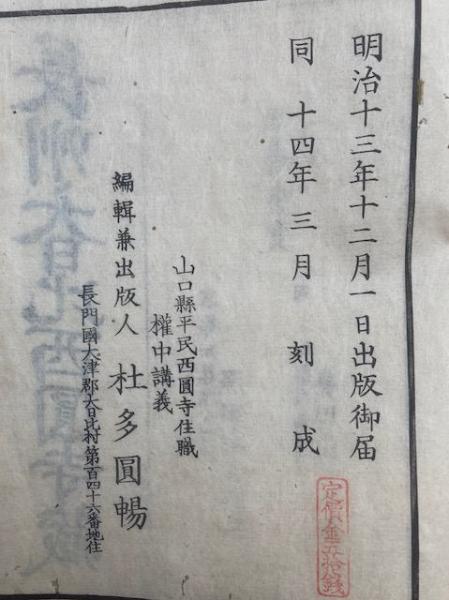 明治十三年十二月一日出版御届
同 十四年三月 刻成
定價金五拾錢
山口縣平民西圓寺住職
權中講義
編輯兼出版人 杜多圓暢
長門國大津郡大日比村第百四十六番地住